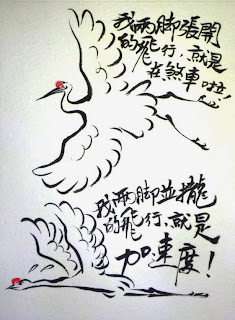 我兩脚張開
的飛行,就是
在煞車啦!
我兩脚並攏
的飛行,就是
加速度!